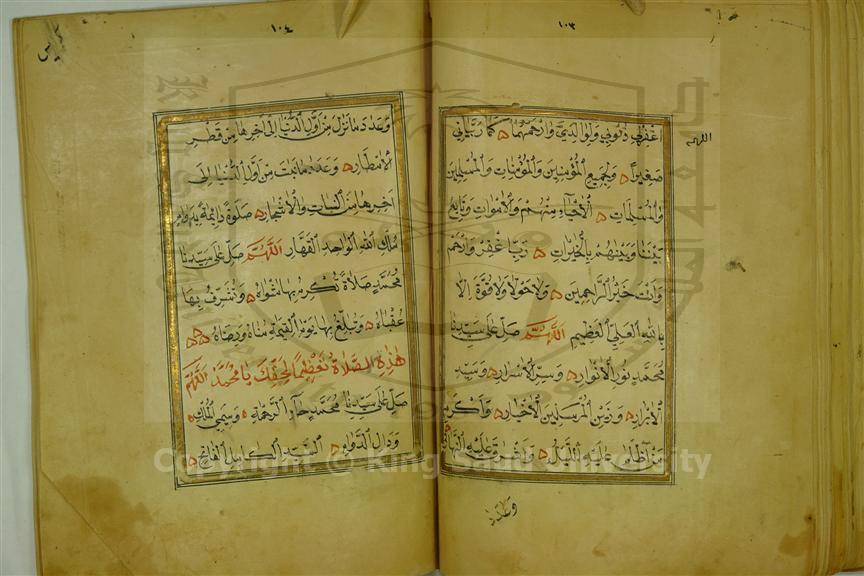 ١٠٣
اغفر لي ذنوبي ولوالدي وارحمهما كما ربياني
اللهم
صغيرا ولجميع المؤمنين والمؤمنات والمسلمين
والمسلمات الاحياء منهم والاموات وتابع
بيننا وبينهم بالخيرات رب اغفر وارحم
وانت خير الراحمين ولا حول ولا قوة الا
بالله العلي العظيم اللهم صل على سيدنا
محمد نور الانوار وسر الاسرار وسيد
الابرار وزين المرسلين الاخيار واكرم
من اظلم عليه الليل واشرق عليه النهار
وعدد
١٠٤
وعدد ما نزل من اول الدنيا الى اخرها من قطر
الامطار وعدد ما نبت من اول الدنيا الى
اخرها من النبات والاشجار صلوة دائمة بدوام
ملك الله الواحد القهار اللهم صل على سيدنا
محمد صلاة تكرم بها مثواه وتشرف بها
عقباه وتبلغ بها يوم القيمة مناه ورضاه
هذه الصلاة تعظيما لحقك يا محمد اللهم
صل على سيدنا محمد حاء الرحمة وميمي الملك
ودال الدوام السيد الكامل الفاتح
Copyright © King Saud University